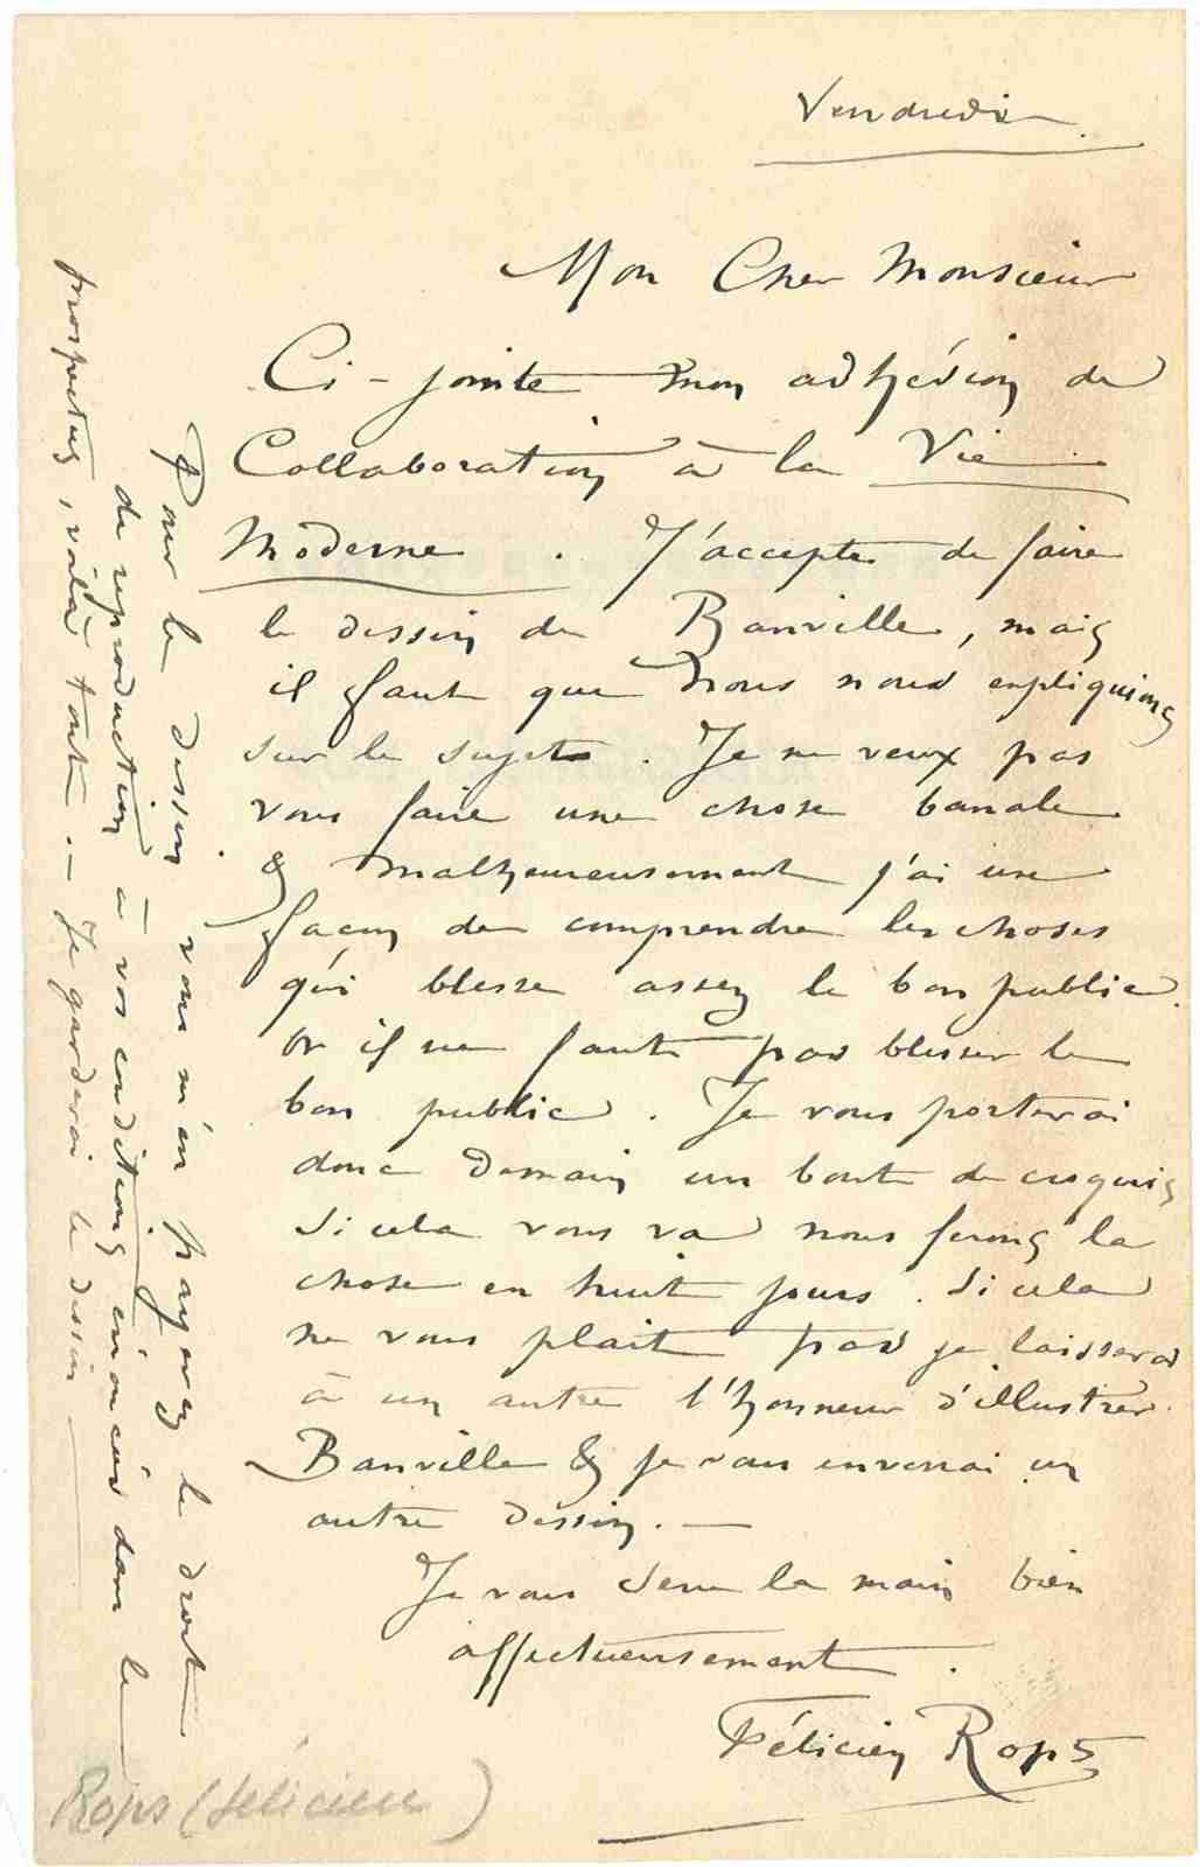 Vendredi
Mon Cher Monsieur
Ci-jointe mon adhésion de
Collaboration à la Vie
Moderne. J'accepte de faire
le dessin de Banville, mais
il faut que nous nous expliquions
sur le sujet. Je ne veux pas
vous faire une chose banale
& malheureusement j'ai une
façon de comprendre les choses
qui blesse assez le bon public.
or il ne faut pas blesser le
bon public. Je vous porterai
donc Demain un bout de croquis
Si cela vous va nous ferons la
chose en huit jours. Si cela
ne vous plait pas je laisserai
à un autre l'honneur d'illustrer
Banville & je vous enverrai un
autre dessin. —
Je vous serre la main bien
affectueusement.
Félicien Rops
Pour le dessin vous m'en payerez le droit
de reproduction à vos conditions énoncées dans le
prospectus, voilà tout. — Je garderai le dessin
Rops (Félicien)